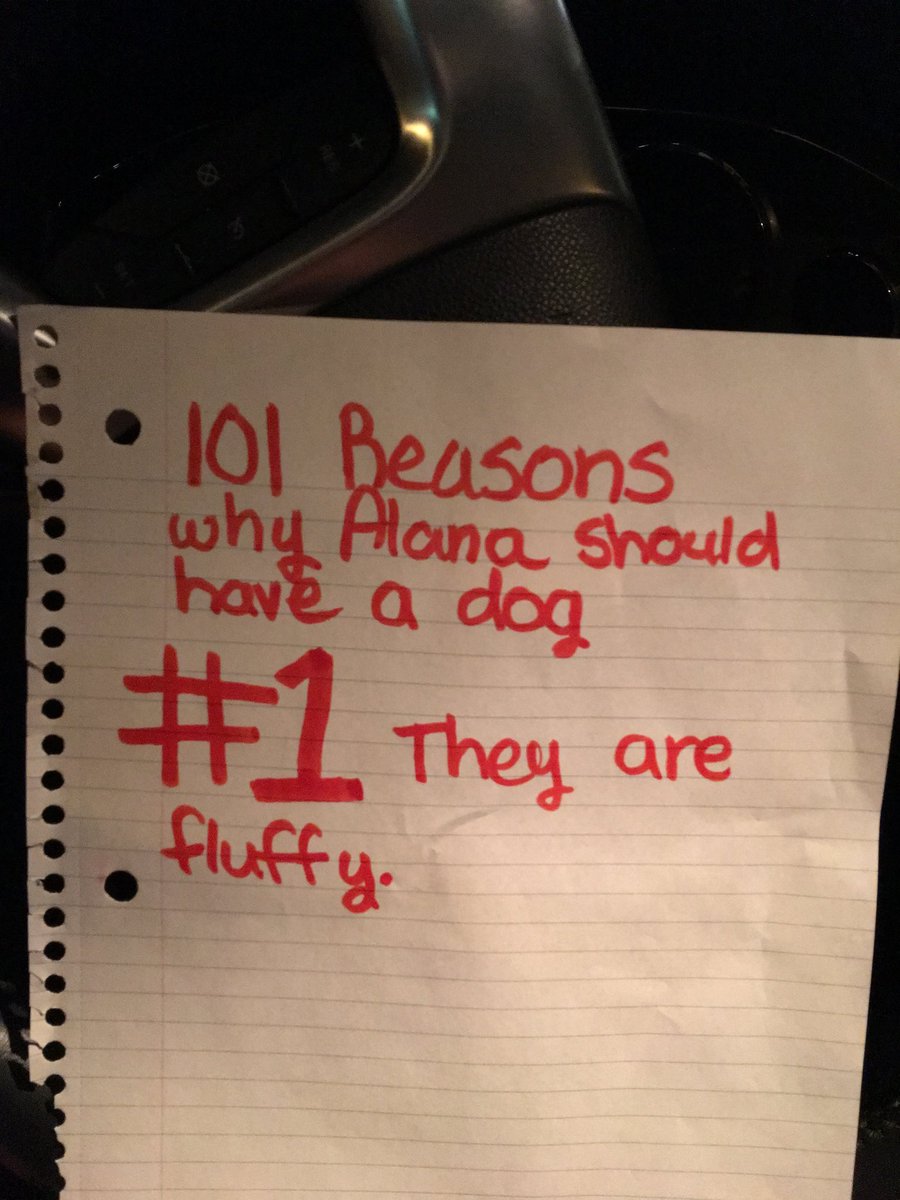 101 Reasons
why Alana should
have a dog
#1 They are
fluffy.